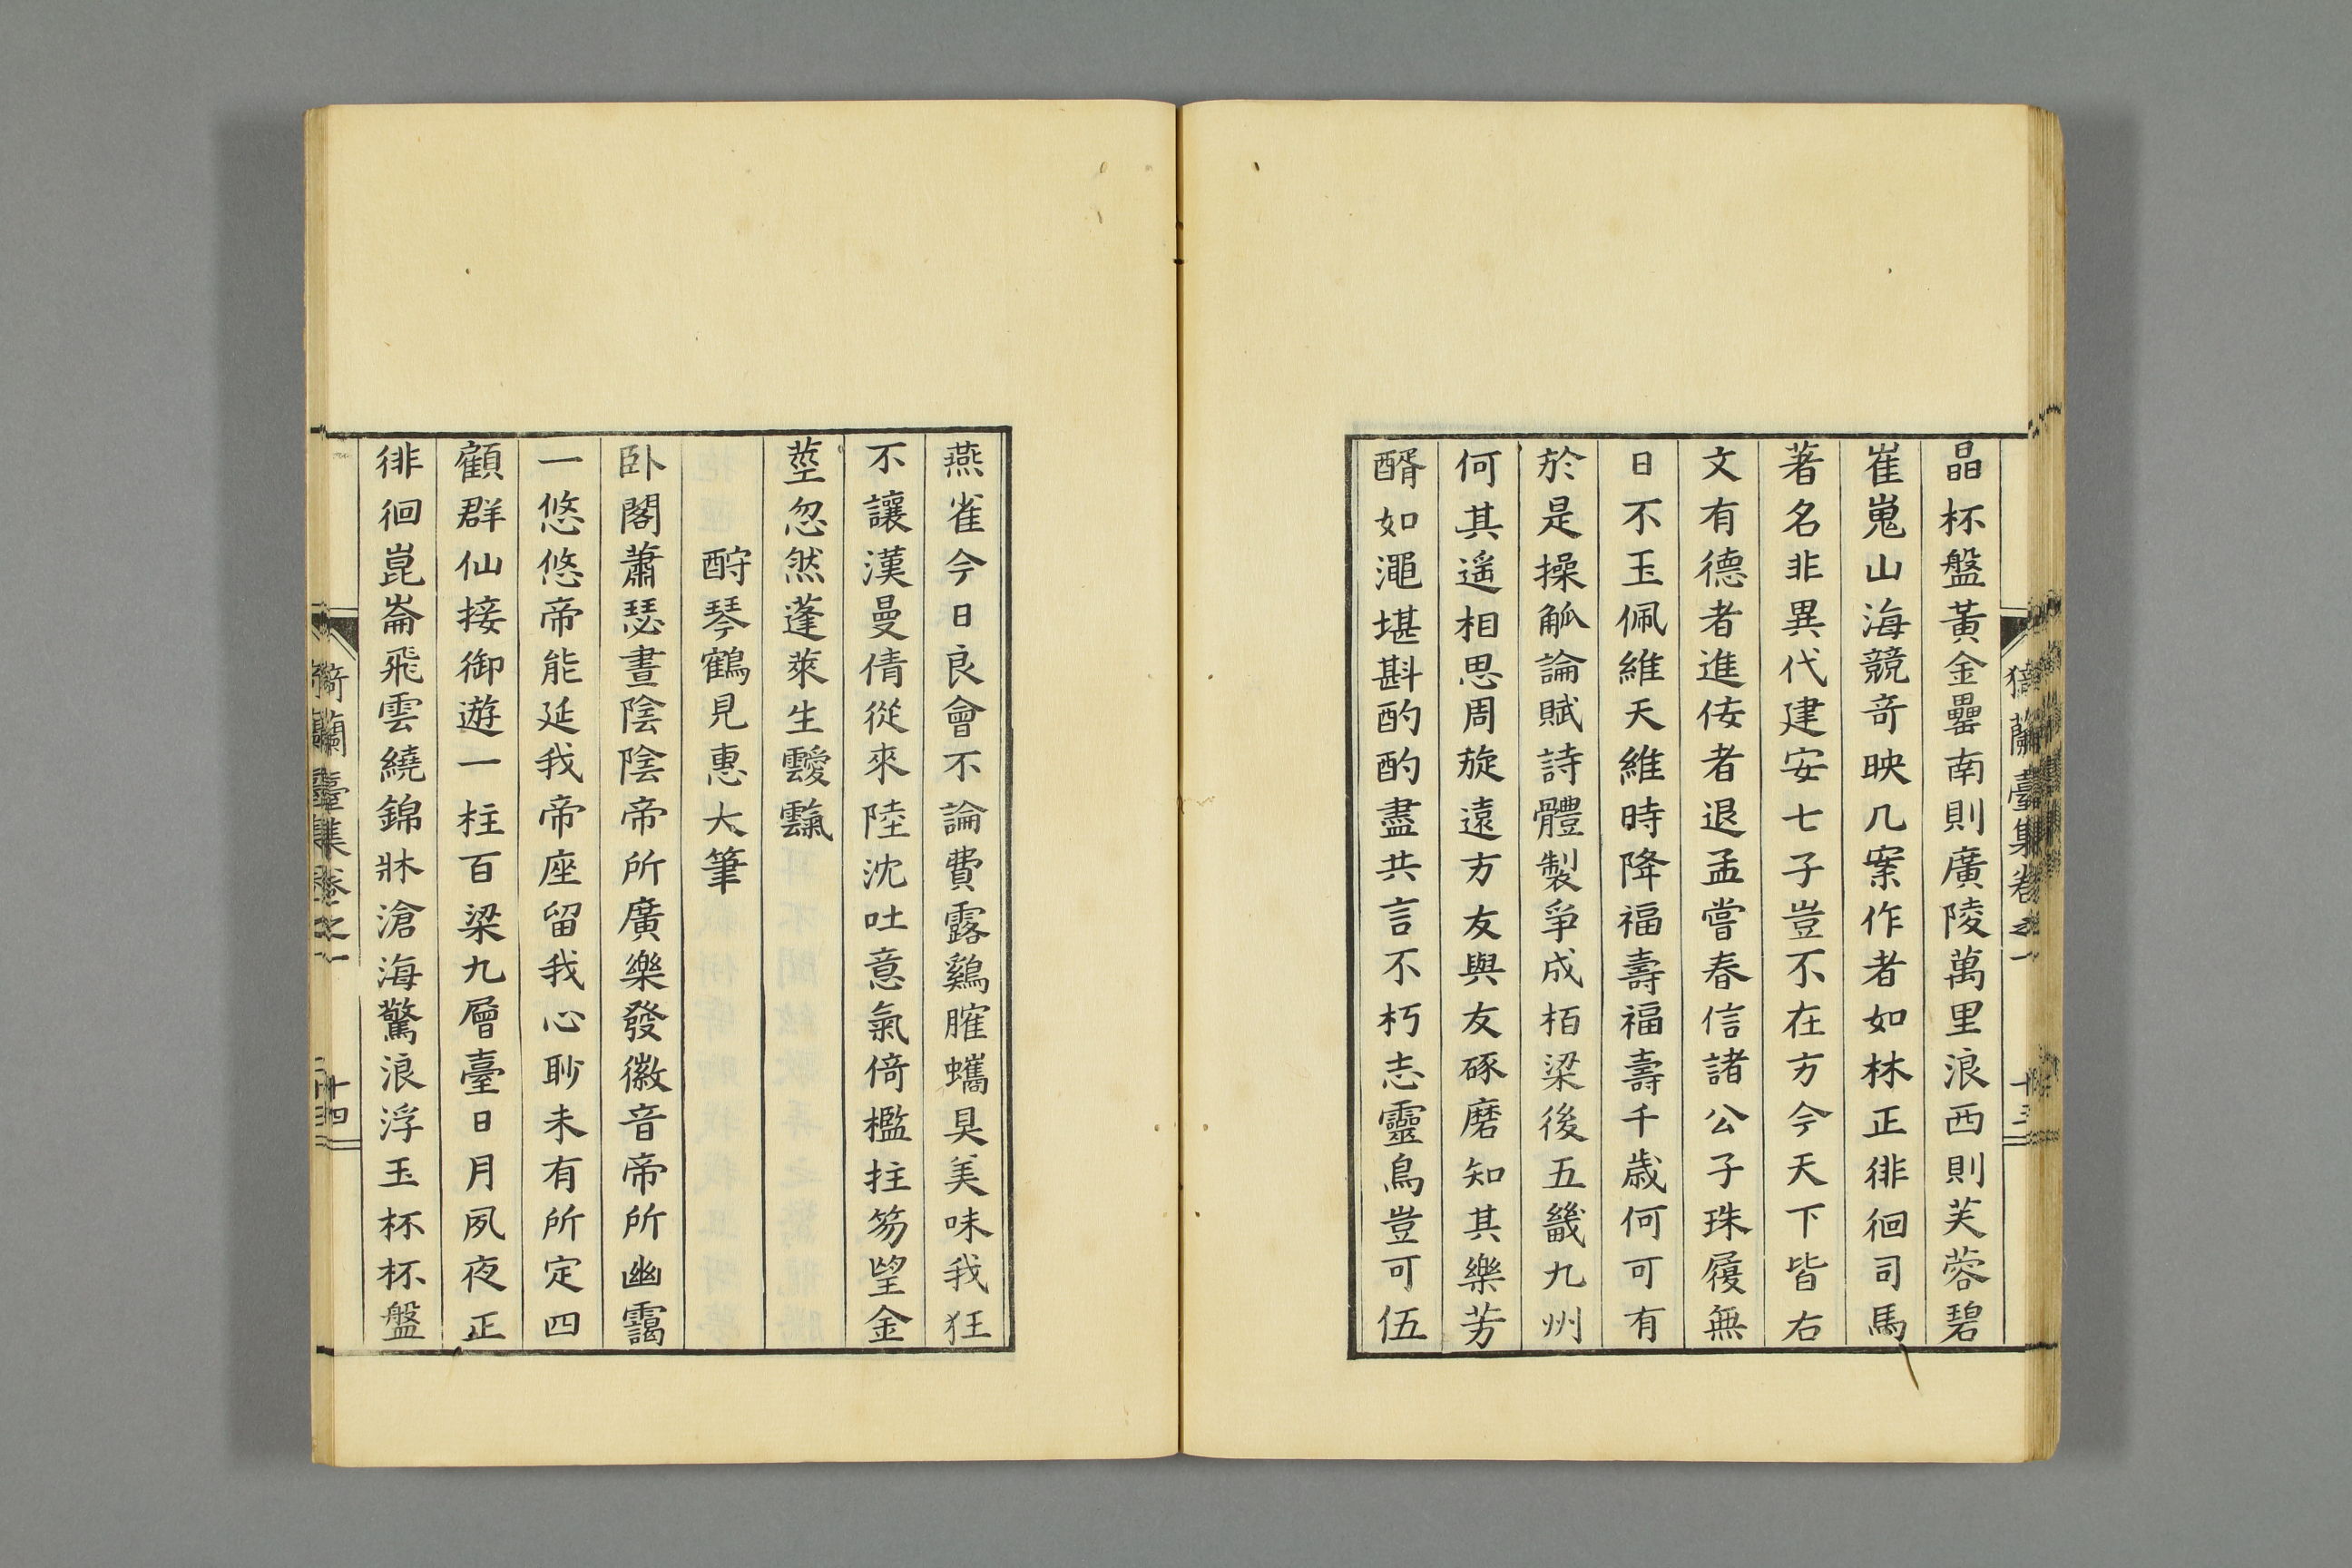 猗蘭臺集卷之一
晶杯盤黃金罍南則廣陵萬里浪西則芙蓉碧
崔嵬山海競奇映几案作者如林正徘徊司馬
著名非異代建安七子豈不在方今天下皆右
文有德者進佞者退孟嘗春信諸公子珠履無
日不玉佩維天維時降福壽福壽千歲何可有
於是操觚論賦詩體製爭成栢梁後五畿九州
何其遥相思周旋遠方友與友琢磨知其樂芳
醑如澠堪斟酌酌盡共言不朽志靈鳥豈可伍
燕雀今日良會不論費露鷄臛蠵臭美味我狂
不讓漢曼倩從來陸沈吐意氣倚檻拄笏望金
莖忽然蓬萊生靉霼
酧琴鶴見惠大筆
卧閣蕭瑟晝陰陰帝所廣樂發徽音帝所幽靄
一悠悠帝能延我帝座留我心聊未有所定四
顧群仙接御遊一柱百梁九層臺日月夙夜正
徘徊崑崙飛雲繞錦牀滄海驚浪浮玉杯杯盤
猗蘭臺集卷之一
十四